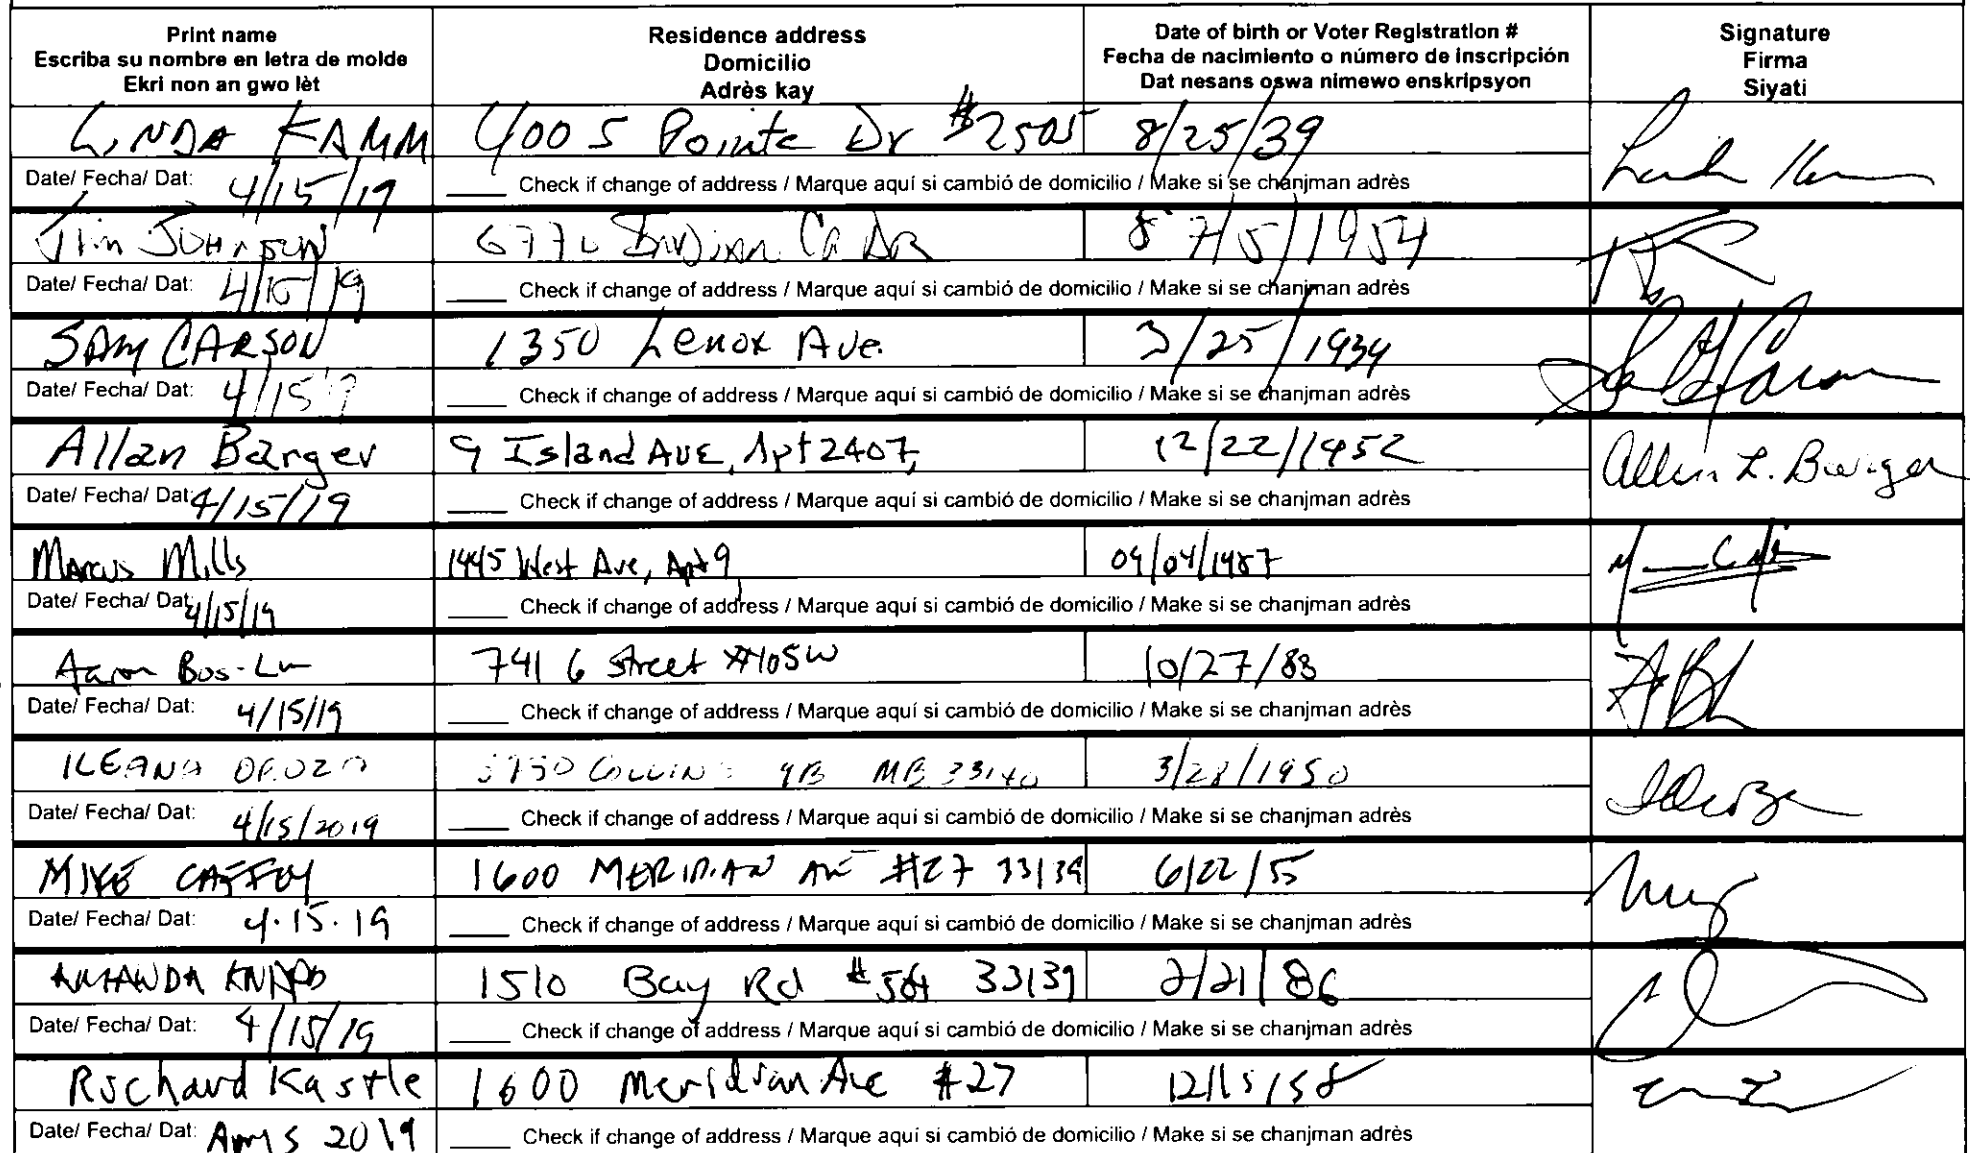 Print name
Escriba su nombre en letra de molde
Ekri non an gwo lèt
Residence address
Domicilio
Adrès kay
Date of birth or Voter Registration #
Fecha de nacimiento o número de inscripción
Dat nesans oswa nimewo enskripsyon
Signature
Firma
Siyati
LINDA KAMM 400 S Pointe Dr #2505 8/25/39
Date/ Fecha/ Dat: 4/15/19 Check if change of address / Marque aquí si cambió de domicilio / Make si se chanjman adrès
Jim JOHNSON 8 7/5/1954
Date/ Fecha/ Dat: 4/15/19 Check if change of address / Marque aquí si cambió de domicilio / Make si se chanjman adrès
SAM CARSON 1350 Lenox Ave. 3/25/1934
Date/ Fecha/ Dat: 4/15 Check if change of address / Marque aquí si cambió de domicilio / Make si se chanjman adrès
Allan Barger 9 Island AVE, Apt 2407, 12/22/1952 Allen L. Barger
Date/ Fecha/ Dat: 4/15/19 Check if change of address / Marque aquí si cambió de domicilio / Make si se chanjman adrès
Marcus Mills 1445 West Ave, Apt 9 09/04/1987
Date/ Fecha/ Dat: 4/15/19 Check if change of address / Marque aquí si cambió de domicilio / Make si se chanjman adrès
Aaron Bos-Lun 741 6 Street #105W 10/27/88
Date/ Fecha/ Dat: 4/15/19 Check if change of address / Marque aquí si cambió de domicilio / Make si se chanjman adrès
ILEANA COLLINS 9B MB 33140 3/28/1950
Date/ Fecha/ Dat: 4/15/2019 Check if change of address / Marque aquí si cambió de domicilio / Make si se chanjman adrès
MIKE 1600 MERIDIAN AVE #27 33139 6/22/55
Date/ Fecha/ Dat: 4.15.19 Check if change of address / Marque aquí si cambió de domicilio / Make si se chanjman adrès
AMANDA KNAPP 1510 Bay Rd 33139 2/21/86
Date/ Fecha/ Dat: 4/15/19 Check if change of address / Marque aquí si cambió de domicilio / Make si se chanjman adrès
Richard Kastle 1600 Meridian Ave #27 12/15/58
Date/ Fecha/ Dat: 2019 Check if change of address / Marque aquí si cambió de domicilio / Make si se chanjman adrès